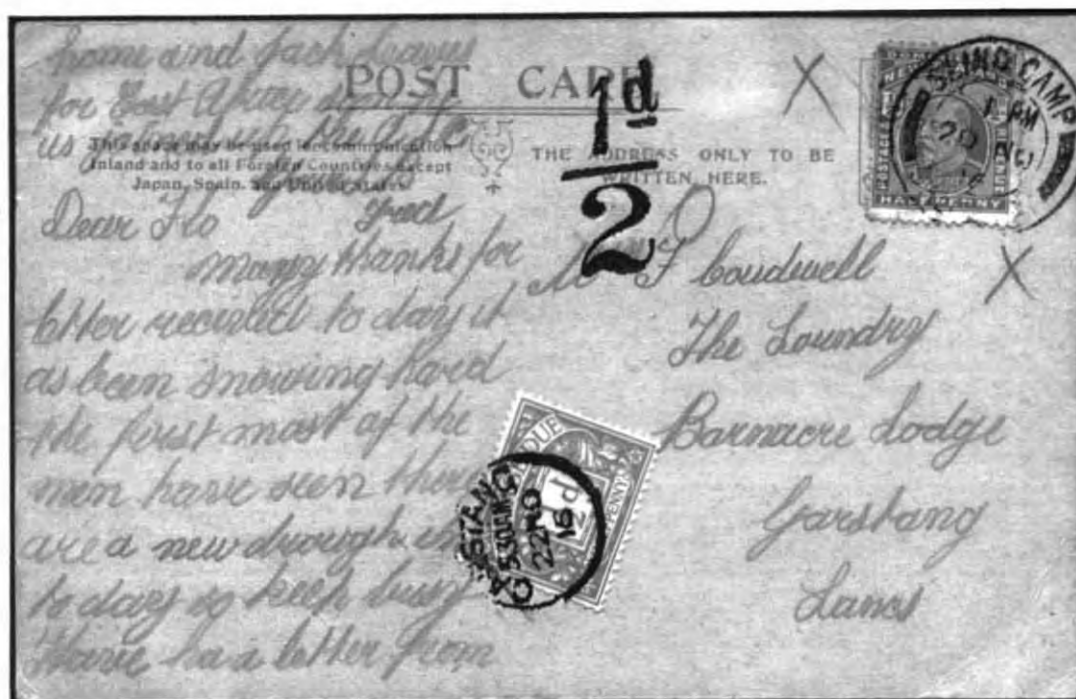 home and Jack leaves
for East Africa
us joined up the
POST CARD
This space may be used for communication
Inland and to all Foreign Countries except
Japan, Spain, and United States
THE ADDRESS ONLY TO BE
WRITTEN HERE.
1d
2
SLING CAMP
NEW ZEALAND
HALF PENNY
Fred
Dear Flo
Many thanks for
letter received to day it
as been snowing hard
the first most of the
men have seen there
are a new drough in
to day so keep busy
Have had a letter from
F Coudwell
The Laundry
Barnacre Lodge
Garstang
Lancs
DUE
GARSTANG
5.30 PM
22 NO
16